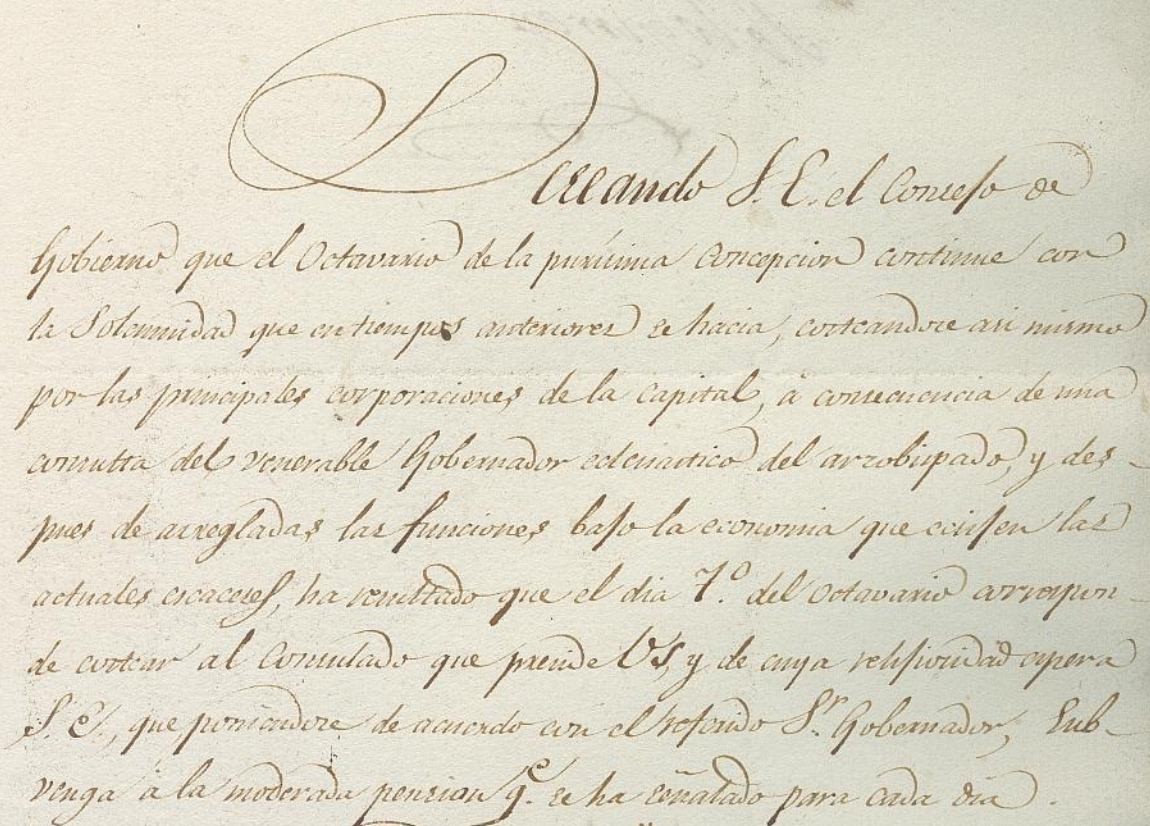 Deceando S. E. el Consejo de
Gobierno que el Octavario de la purísima Concepcion continue con
la Solemnidad que en tiempos anteriores se hacia, costeandose asi mismo
por las principales corporaciones de la capital, á consecuencia de una
consulta del venerable Gobernador eclesiastico del arzobispado, y des-
pues de arregladas las funciones bajo la economia que exijen las
actuales escaceses, ha resultado que el dia 7.º del Octavario correspon-
de costear al Consulado que preside VS, y de cuya relijiosidad espera
S. E., que poniendose de acuerdo con el referido Sr. Gobernador, Sub-
venga á la moderada pension q.e se ha señalado para cada dia.